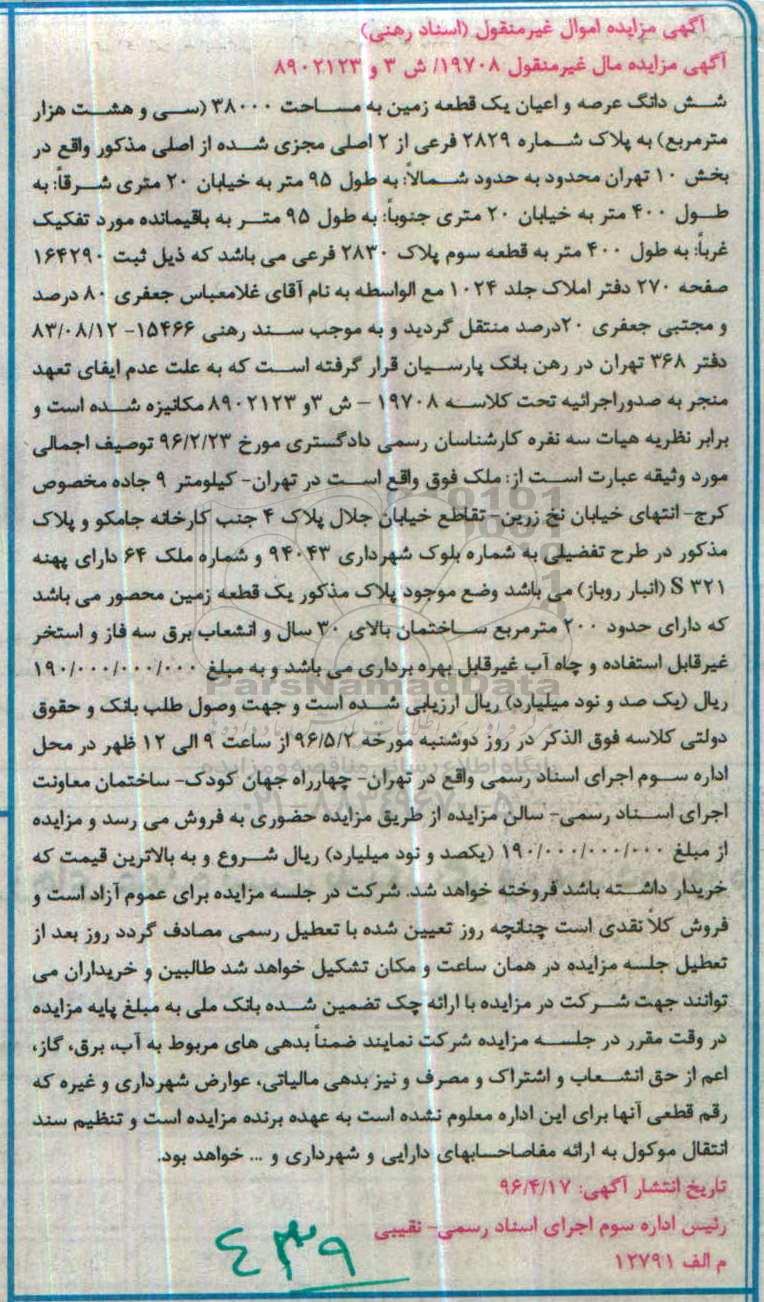 آگهی مزایده اموال غیرمنقول (اسناد رهنی)
آگهی مزایده مال غیرمنقول ۱۹۷۰۸/ ش ۳ و ۸۹۰۲۱۲۳
شش دانگ عرصه و اعیان یک قطعه زمین به مساحت ۳۸۰۰۰ (سی و هشت هزار
مترمربع) به پلاک شماره ۲۸۲۹ فرعی از ۲ اصلی مجزی شده از اصلی مذکور واقع در
بخش ۱۰ تهران محدود به حدود شمالاً: به طول ۹۵ متر به خیابان ۲۰ متری شرقاً: به
طول ۴۰۰ متر به خیابان ۲۰ متری جنوباً: به طول ۹۵ متر به باقیمانده مورد تفکیک
غرباً: به طول ۴۰۰ متر به قطعه سوم پلاک ۲۸۳۰ فرعی می باشد که ذیل ثبت ۱۶۴۲۹۰
صفحه ۲۷۰ دفتر املاک جلد ۱۰۲۴ مع الواسطه به نام آقای غلامعباس جعفری ۸۰ درصد
و مجتبی جعفری ۲۰درصد منتقل گردید و به موجب سند رهنی ۱۵۴۶۶- ۸۳/۰۸/۱۲
دفتر ۳۶۸ تهران در رهن بانک پارسیان قرار گرفته است که به علت عدم ایفای تعهد
منجر به صدوراجرائیه تحت کلاسه ۱۹۷۰۸ - ش ۳و ۸۹۰۲۱۲۳ مکانیزه شده است و
برابر نظریه هیات سه نفره کارشناسان رسمی دادگستری مورخ ۹۶/۲/۲۳ توصیف اجمالی
مورد وثیقه عبارت است از: ملک فوق واقع است در تهران- کیلومتر ۹ جاده مخصوص
کرج- انتهای خیابان نخ زرین- تقاطع خیابان جلال پلاک ۴ جنب کارخانه جامکو و پلاک
مذکور در طرح تفضیلی به شماره بلوک شهرداری ۹۴۰۴۳ و شماره ملک ۶۴ دارای پهنه
S ۳۲۱ (انبار روباز) می باشد وضع موجود پلاک مذکور یک قطعه زمین محصور می باشد
که دارای حدود ۲۰۰ مترمربع ساختمان بالای ۳۰ سال و انشعاب برق سه فاز و استخر
غیرقابل استفاده و چاه آب غیرقابل بهره برداری می باشد و به مبلغ ۱۹۰/۰۰۰/۰۰۰/۰۰۰
ParsNamadData
ریال (یک صد و نود میلیارد) ریال ارزیابی شده است و جهت وصول طلب بانک و حقوق
دولتی کلاسه فوق الذکر در روز دوشنبه مورخه ۹۶/۵/۲ از ساعت ۹ الی ۱۲ ظهر در محل
پایگاه اطلاع رسانی مناقصه و مزایده
اداره سوم اجرای اسناد رسمی واقع در تهران- چهارراه جهان کودک- ساختمان معاونت
اجرای اسناد رسمی- سالن مزایده از طریق مزایده حضوری به فروش می رسد و مزایده
از مبلغ ۱۹۰/۰۰۰/۰۰۰/۰۰۰ (یکصد و نود میلیارد) ریال شروع و به بالاترین قیمت که
خریدار داشته باشد فروخته خواهد شد. شرکت در جلسه مزایده برای عموم آزاد است و
فروش کلاً نقدی است چنانچه روز تعیین شده با تعطیل رسمی مصادف گردد روز بعد از
تعطیل جلسه مزایده در همان ساعت و مکان تشکیل خواهد شد طالبین و خریداران می
توانند جهت شرکت در مزایده با ارائه چک تضمین شده بانک ملی به مبلغ پایه مزایده
در وقت مقرر در جلسه مزایده شرکت نمایند ضمناً بدهی های مربوط به آب، برق، گاز،
اعم از حق انشعاب و اشتراک و مصرف و نیز بدهی مالیاتی، عوارض شهرداری و غیره که
رقم قطعی آنها برای این اداره معلوم نشده است به عهده برنده مزایده است و تنظیم سند
انتقال موکول به ارائه مفاصاحسابهای دارایی و شهرداری و ... خواهد بود.
تاریخ انتشار آگهی: ۹۶/۴/۱۷
رئیس اداره سوم اجرای اسناد رسمی- نقیبی
م الف ۱۲۷۹۱
۴۳۹